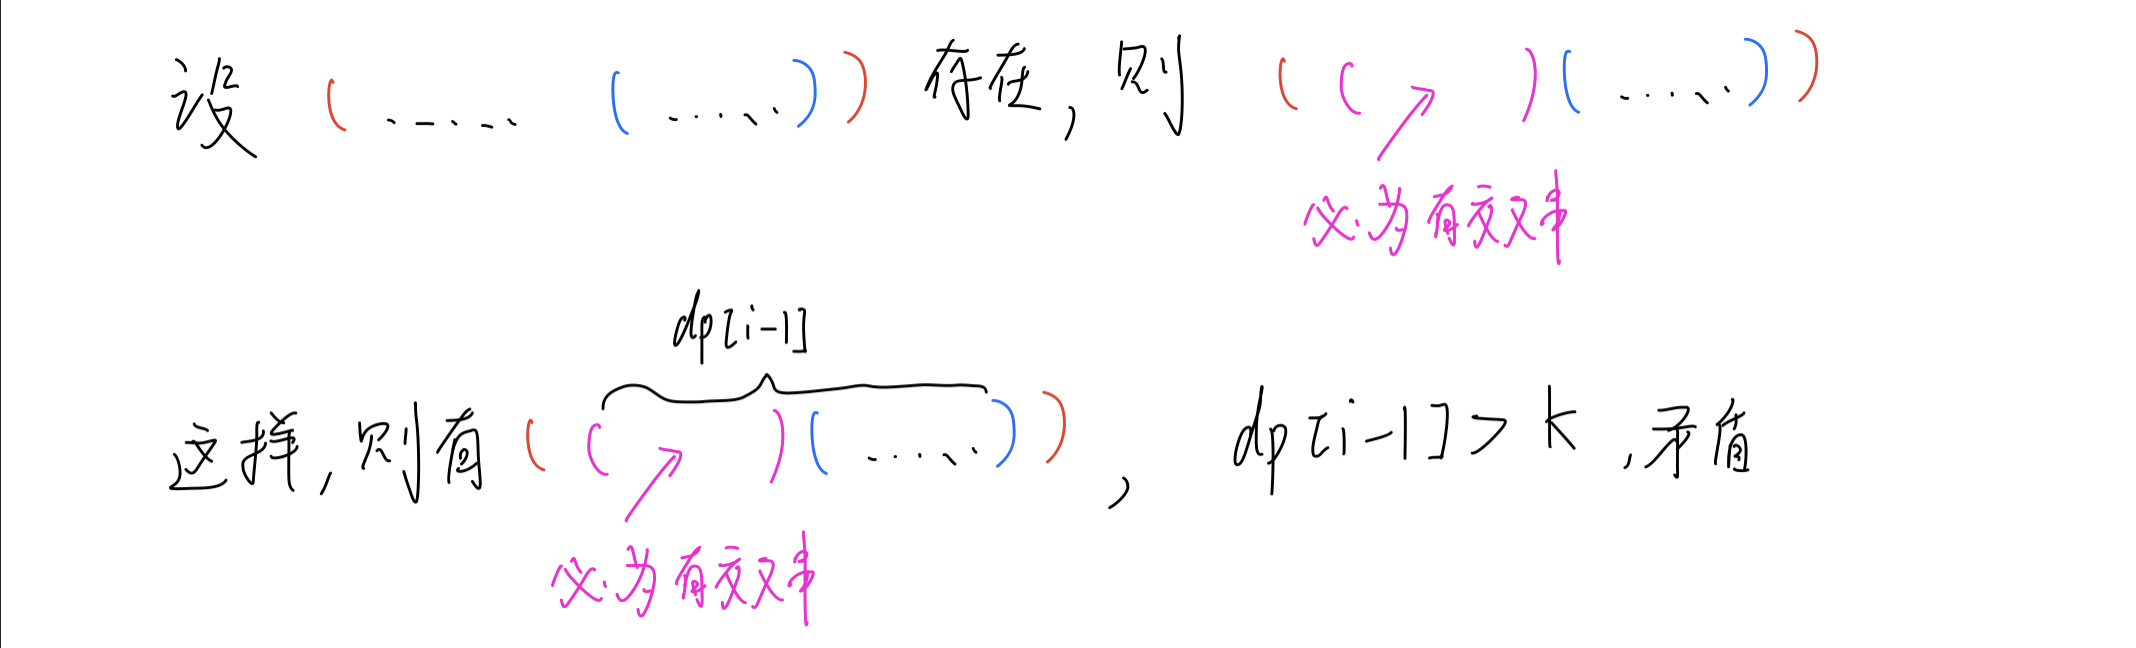 设 ( ...... ( ..... ) ) 存在, 则 ( ( ) ( ..... ) )
必为有效串
dp[i-1]
这样, 则有 ( ( ) ( ..... ) ) , dp[i-1] > k , 矛盾
必为有效串